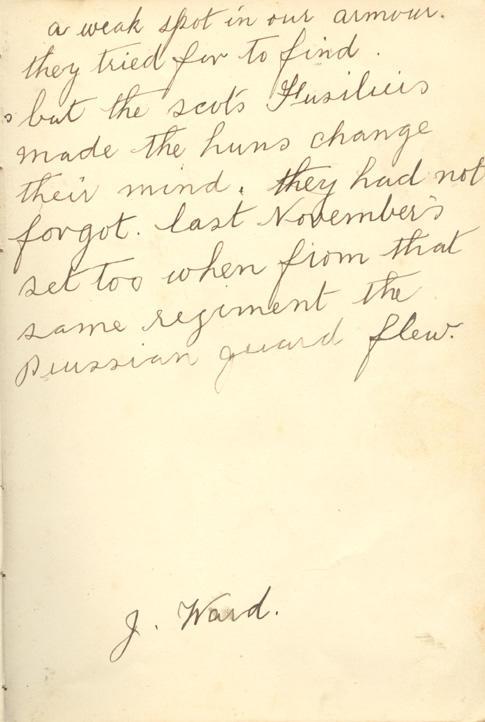 a weak spot in our armour.
they tried for to find.
but the scots Fusiliers
made the huns change
their mind. they had not
forgot. last November's
set too when from that
same regiment the
Prussian guard flew.
J. Ward.